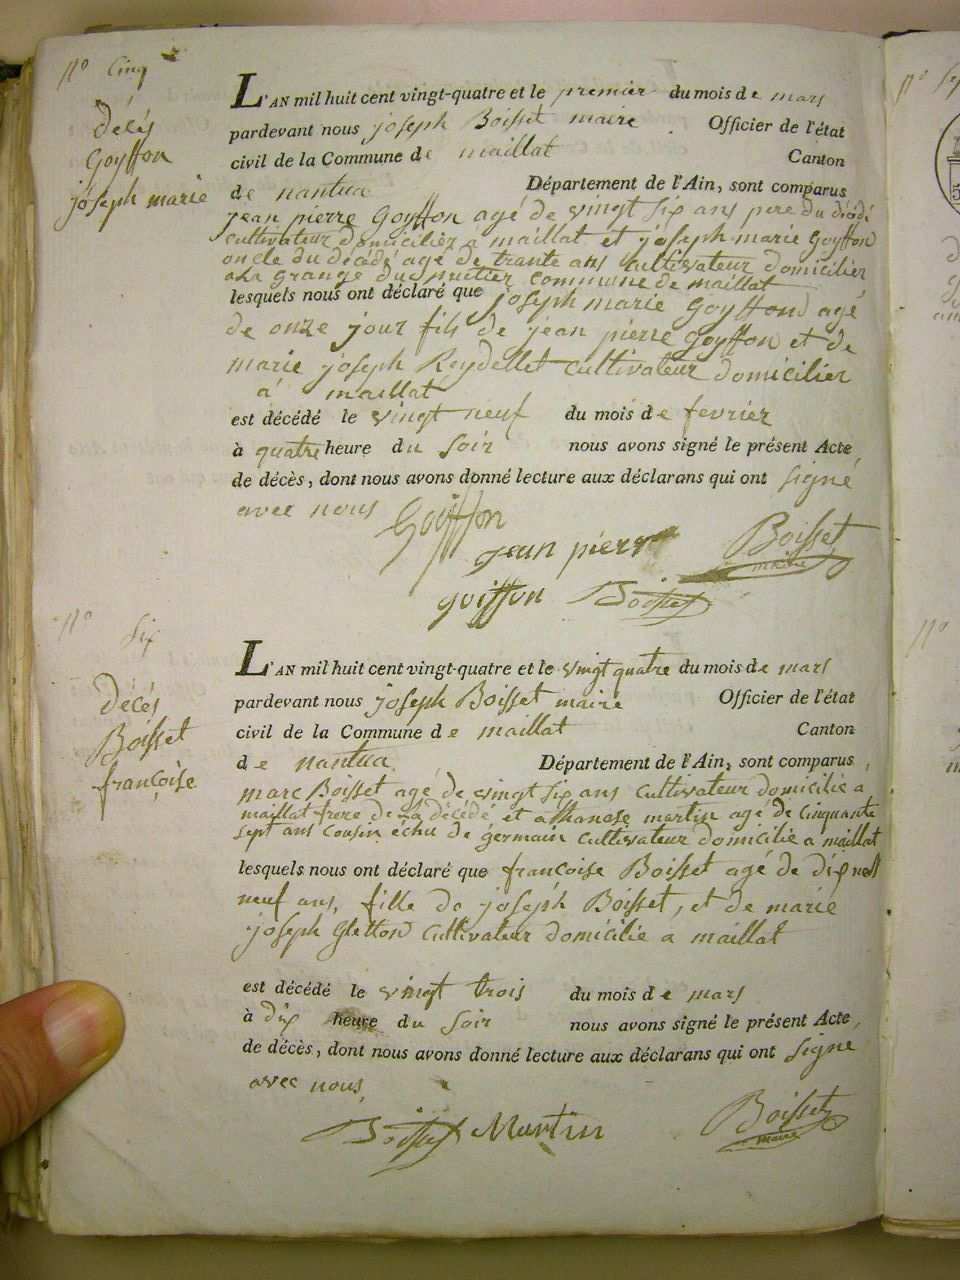 n.o Cinq
décés
Goyffon
joseph marie
L'AN mil huit cent vingt-quatre et le premier du mois de mars
pardevant nous joseph Boisset maire Officier de l'état
civil de la Commune de maillat Canton
de nantua Département de l'Ain, sont comparus
jean pierre Goyffon agé de vingt six ans pere du décdé
cultivateur domicilier a maillat et joseph marie Goyffon
oncle du décédé agé de trante ans cultivateur domicilier
a La Grange du commune de maillat
lesquels nous ont déclaré que joseph marie Goyffond agé
de onze jour fils de jean pierre Goyffon et de
marie joseph Reydellet cultivateur domicilier
a maillat
est décédé le vingt neuf du mois de fevrier
à quatre heure du soir nous avons signé le présent Acte
de décès, dont nous avons donné lecture aux déclarans qui ont signé
avec nous Goyffon
jean pierre Boisset
maire
goiffon Boisset
n.o
six
décés
Boisset
françoise
L'AN mil huit cent vingt-quatre et le vingt quatre du mois de mars
pardevant nous joseph Boisset maire Officier de l'état
civil de la Commune de maillat Canton
de nantua Département de l'Ain, sont comparus
marc Boisset agé de vingt six ans cultivateur domicilié a
maillat frere de La décédé et athanase martin agé de cinquante
sept ans cousin échu de germain cultivateur domicilié a maillat
lesquels nous ont déclaré que françoise Boisset agé de dix neuf
neuf ans, fille de joseph Boisset, et de marie
joseph Gletton cultivateur domicilié a maillat
est décédé le vingt trois du mois de mars
à dix heure du soir nous avons signé le présent Acte
de décès, dont nous avons donné lecture aux déclarans qui ont signé
avec nous
Boisset Martin Boisset
maire